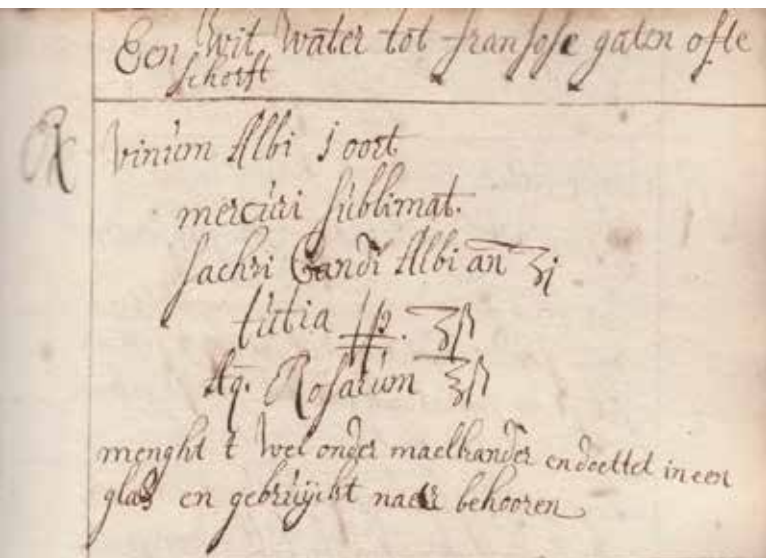 Een wit water tot fransose gaten ofte
schorft
℞ vinum Albi j oort
mercuri sublimat.
sachri Candi Albi an ʒj
tutia pp. ʒß
Aq. Rosarum ℥ß
menght t wel onder maelkander en doettet in een
glas en gebruijckt naer behooren